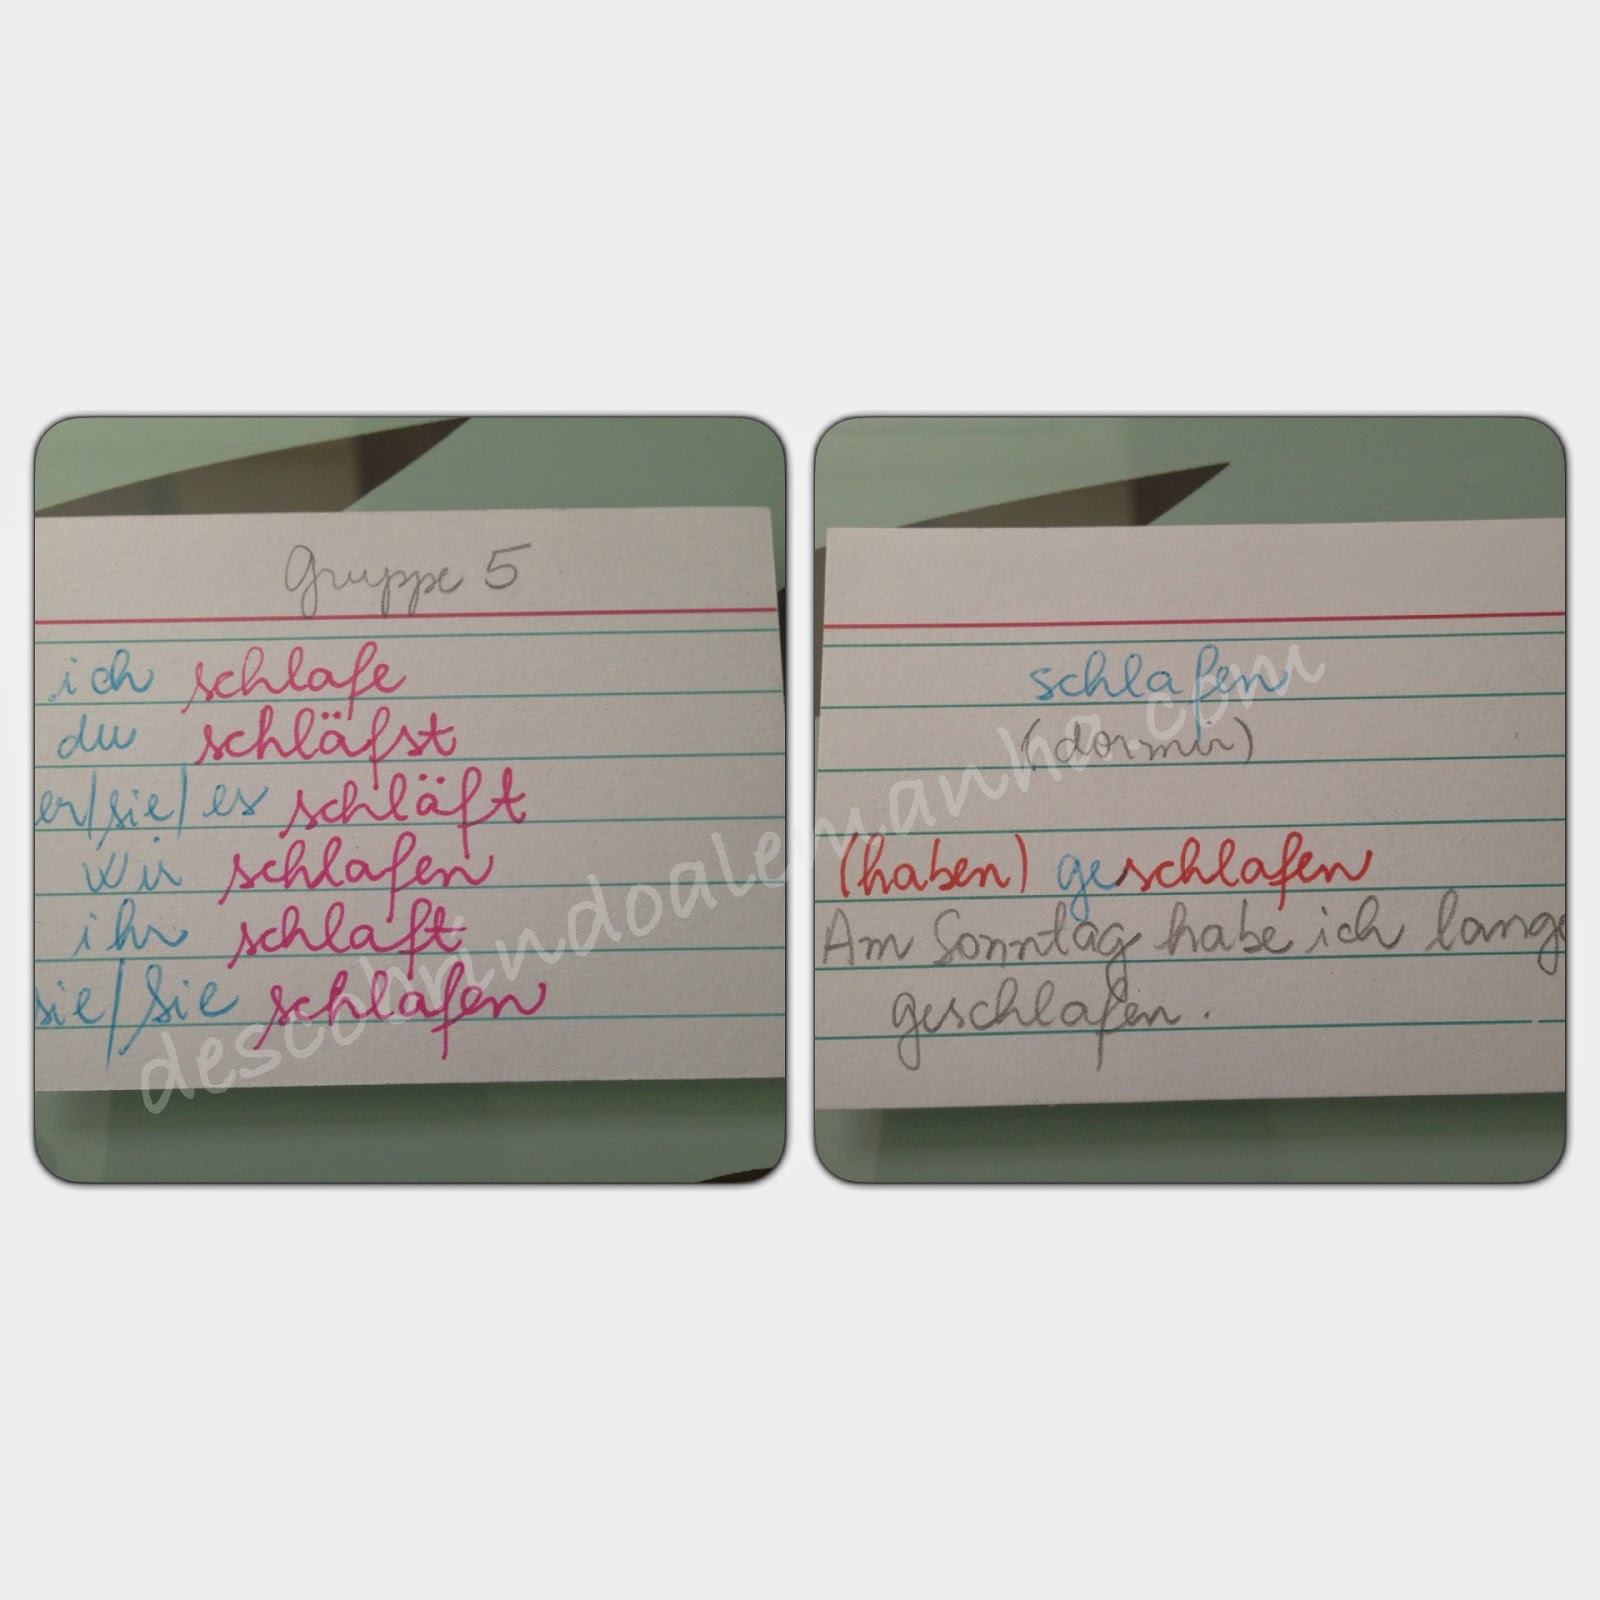 Gruppe 5
ich schlafe
du schläfst
er/sie/es schläft
wir schlafen
ihr schlaft
sie/Sie schlafen
schlafen
(dormir)
(haben) geschlafen
Am Sonntag habe ich lange
geschlafen.
descobrindoalemanha.com